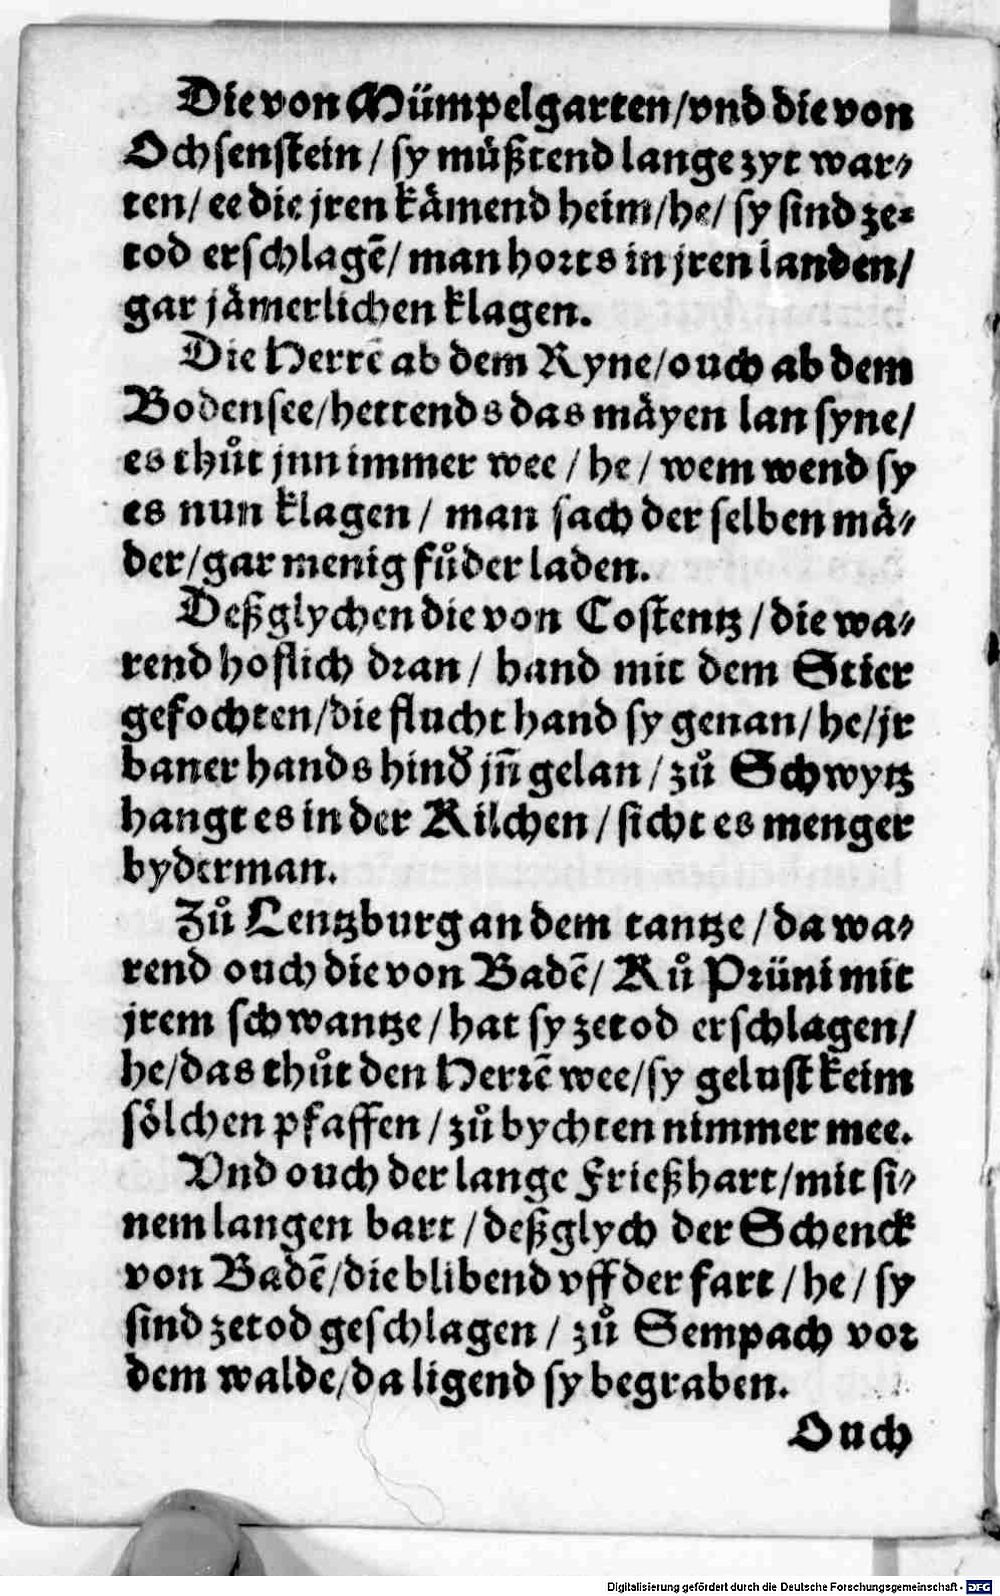 Die von Mümpelgarten/vnd die von
Ochsenstein / sy müßtend lange zyt war⸗
ten/ ee die jren kämend heim/he/ sy sind ze⸗
tod erschlagē/ man horts in jren landen/
gar jämerlichen klagen.
Die Herrē ab dem Ryne/ouch ab dem
Bodensee/hettends das mäyen lan syne/
es thůt jnn immer wee / he / wem wend sy
es nun klagen / man sach der selben mä⸗
der/gar menig fůder laden.
Deßglychen die von Costentz / die wa⸗
rend hoflich dran / hand mit dem Stier
gefochten/die flucht hand sy genan/ he/jr
baner hands hind jñ gelan / zů Schwytz
hangt es in der Kilchen / sicht es menger
byderman.
Zů Lentzburg an dem tantze / da wa⸗
rend ouch die von Badē/ Ků Prüni mit
jrem schwantze / hat sy zetod erschlagen/
he/das thůt den Herrē wee/sy gelust keim
sölchen pfaffen / zů bychten nimmer mee.
Vnd ouch der lange Frießhart/mit si⸗
nem langen bart / deßglych der Schenck
von Badē/die blibend vff der fart / he / sy
sind zetod geschlagen / zů Sempach vor
dem walde/da ligend sy begraben.
Ouch
Digitalisierung gefördert durch die Deutsche Forschungsgemeinschaft - DFG